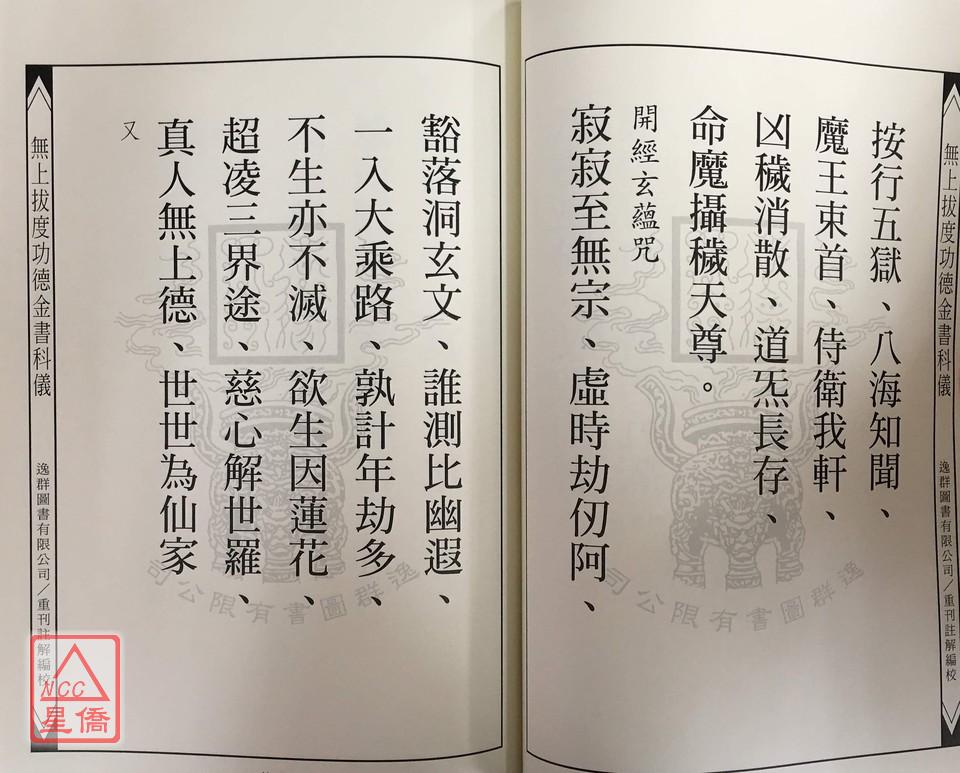 無上拔度功德金書科儀
逸群圖書有限公司／重刊註解編校
按行五獄、八海知聞、
魔王束首、侍衛我軒、
凶穢消散、道炁長存、
命魔攝穢天尊。
開經玄蘊咒
寂寂至無宗、虛時劫仞阿、
豁落洞玄文、誰測比幽遐、
一入大乘路、孰計年劫多、
不生亦不滅、欲生因蓮花、
超凌三界途、慈心解世羅、
真人無上德、世世為仙家
又
無上拔度功德金書科儀
逸群圖書有限公司／重刊註解編校
逸群圖書有限公司
逸群圖書有限公司
NCC
星僑